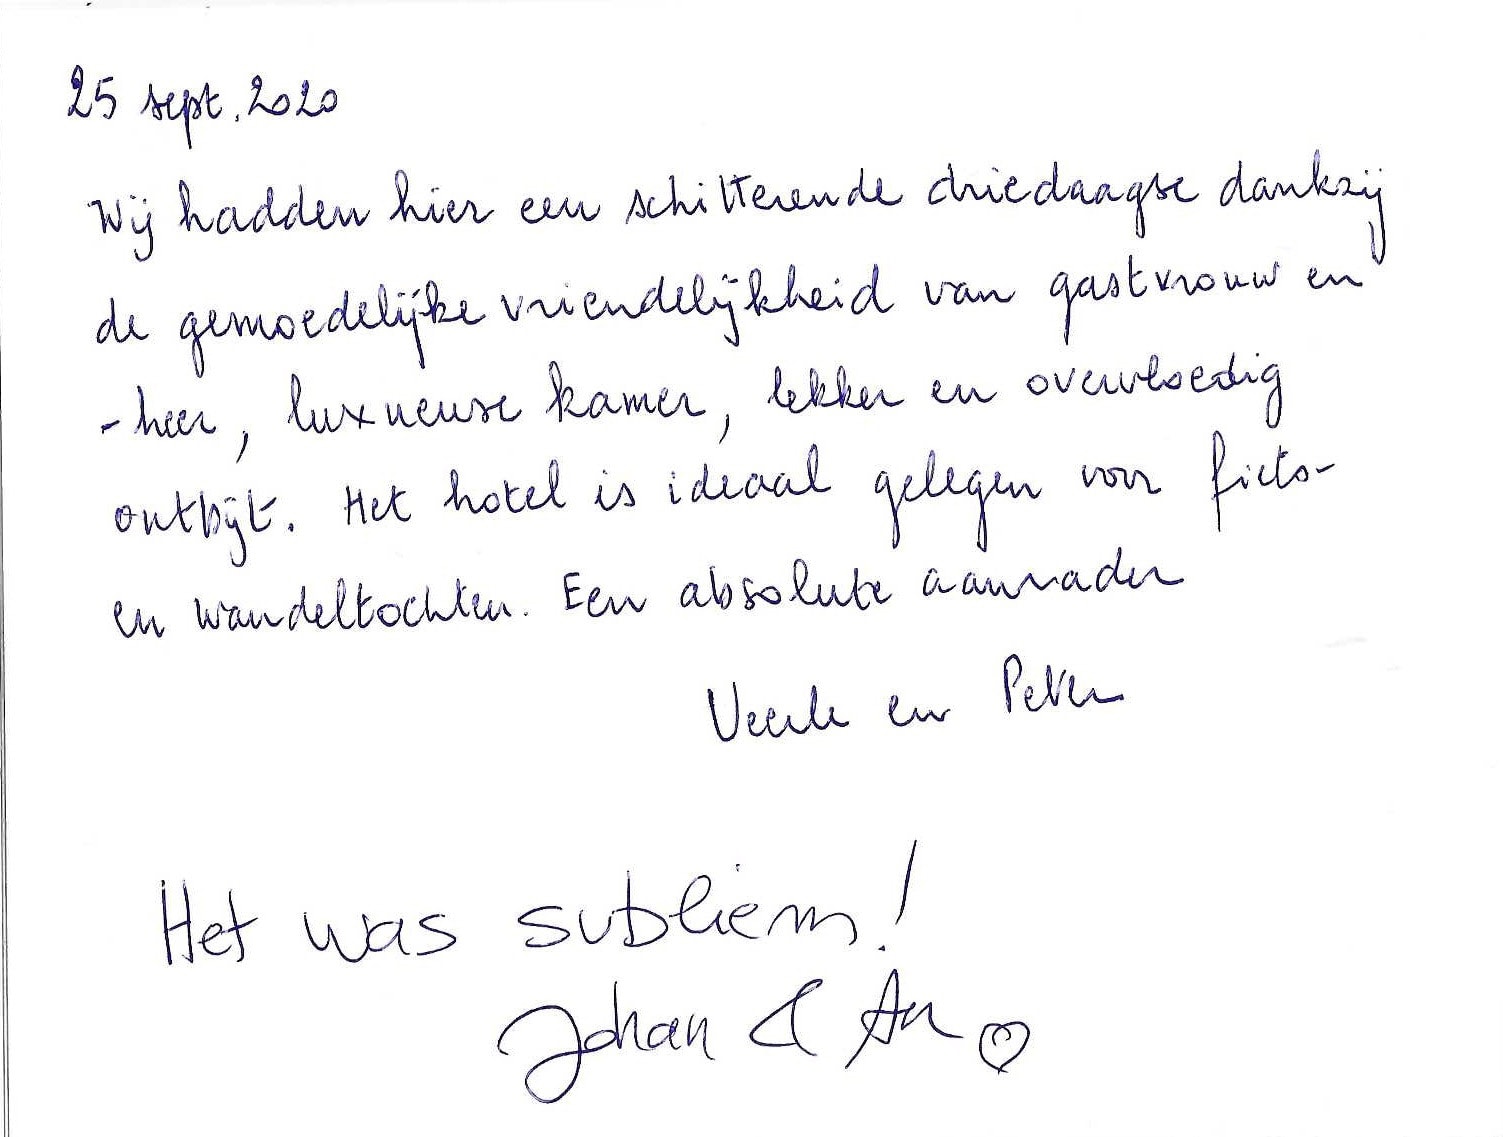 25 sept. 2020
Wij hadden hier een schitterende driedaagse dankzij
de gemoedelijke vriendelijkheid van gastvrouw en
-heer, luxueuse kamer, lekker en overvloedig
ontbijt. Het hotel is ideaal gelegen voor fiets-
en wandeltochten. Een absolute aanrader
Veerle en Peter
Het was subliem!
Johan & An ♡